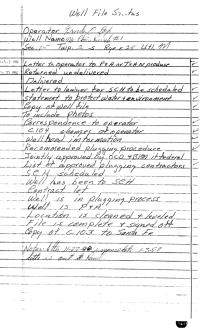 Well File Status
Operator
Well Name #1
Sec. 15 Twp. 2 S Rge 28 Ult M
Letter to operator to P&A or T&A or produce
Returned undelivered
Delivered
Letter to landowner for SCH to be scheduled
Statement to protect water & environment
Copy of well file
To include photos
Correspondence to operator
C104 changes of operator
Wellhead information
Recommended plugging procedure
Jointly approved by OCD & BLM if federal
List of approved plugging contractors
SCH scheduled
Well has been to SCH
Contract let
Well is in plugging process
Well is P&A
Location is cleaned & leveled
File is complete & signed off
Copy of C103 to Santa Fe
Notes: